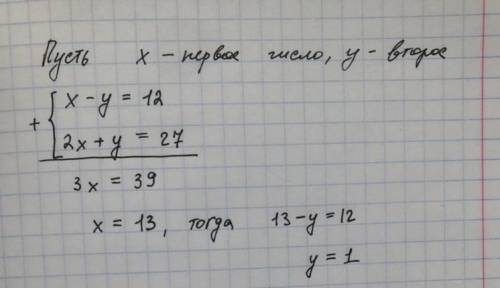 Пусть x – первое число, y – второе
+ { x – y = 12
2x + y = 27
3x = 39
x = 13, тогда 13 – y = 12
y = 1